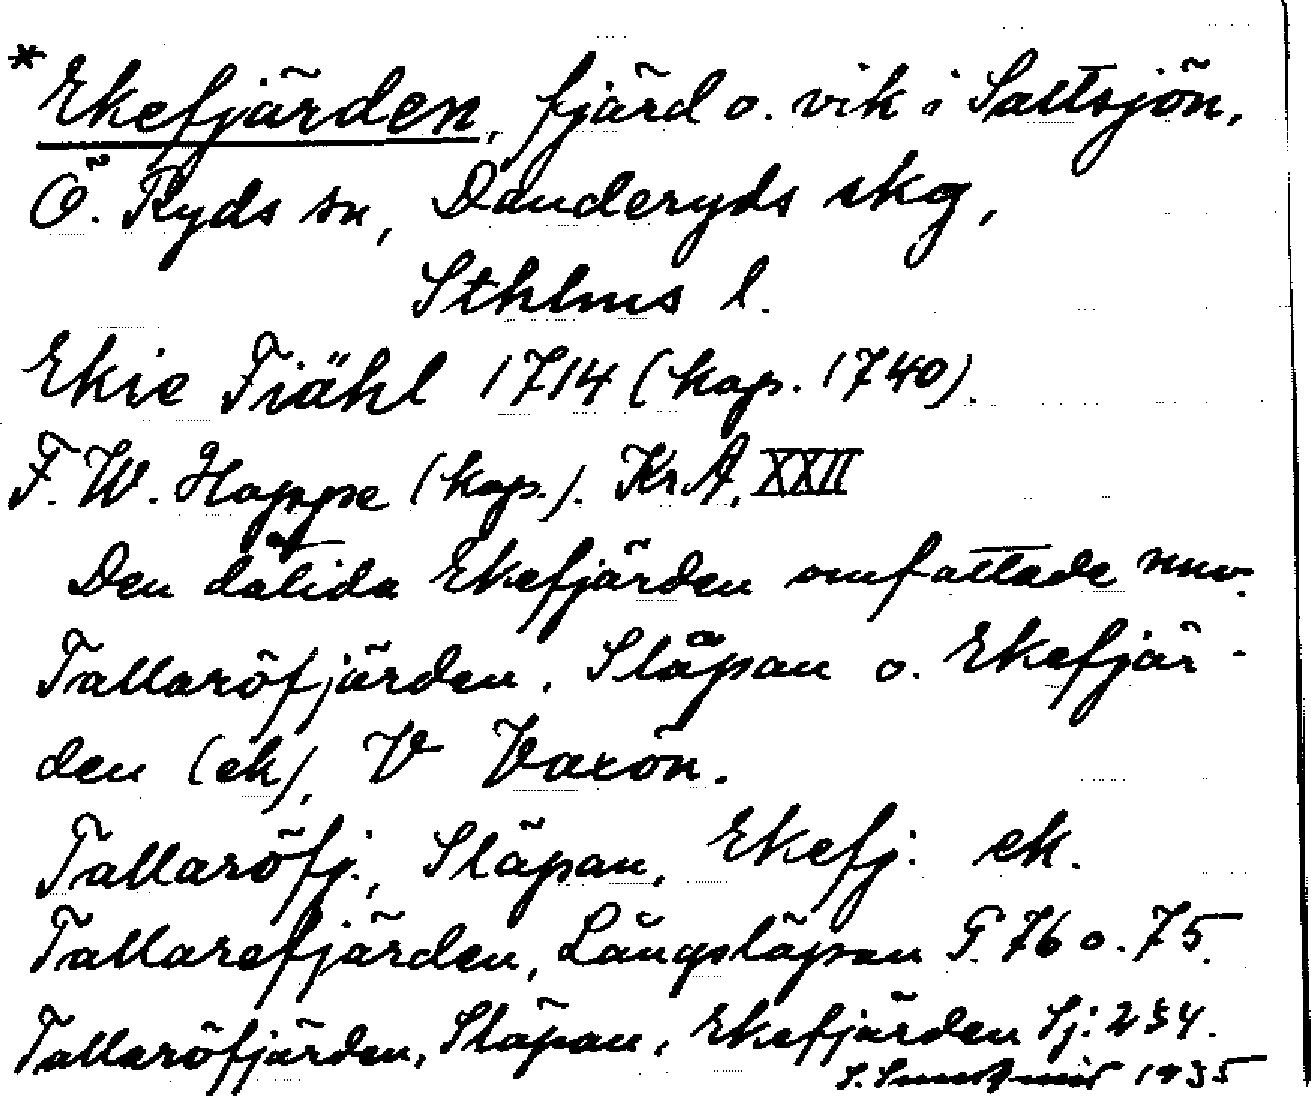 *Ekefjärden, fjärd o. vik i Saltsjön,
Ö. Ryds sn, Danderyds skg,
Sthlms l.
Ekie Fiähl 1714 (kop. 1740).
F. W. Hoppe (kop.). Kr.A. XXII
Den dåtida Ekefjärden omfattade nuv.
Tallaröfjärden, Släpan o. Ekefjär-
den (ek), V Vaxön.
Tallaröfj., Släpan, Ekefj. ek.
Tallarefjärden, Långsläpan G. 76 o. 75.
Tallaröfjärden, Släpan, Ekefjärden Sj: 234.
S. 1935